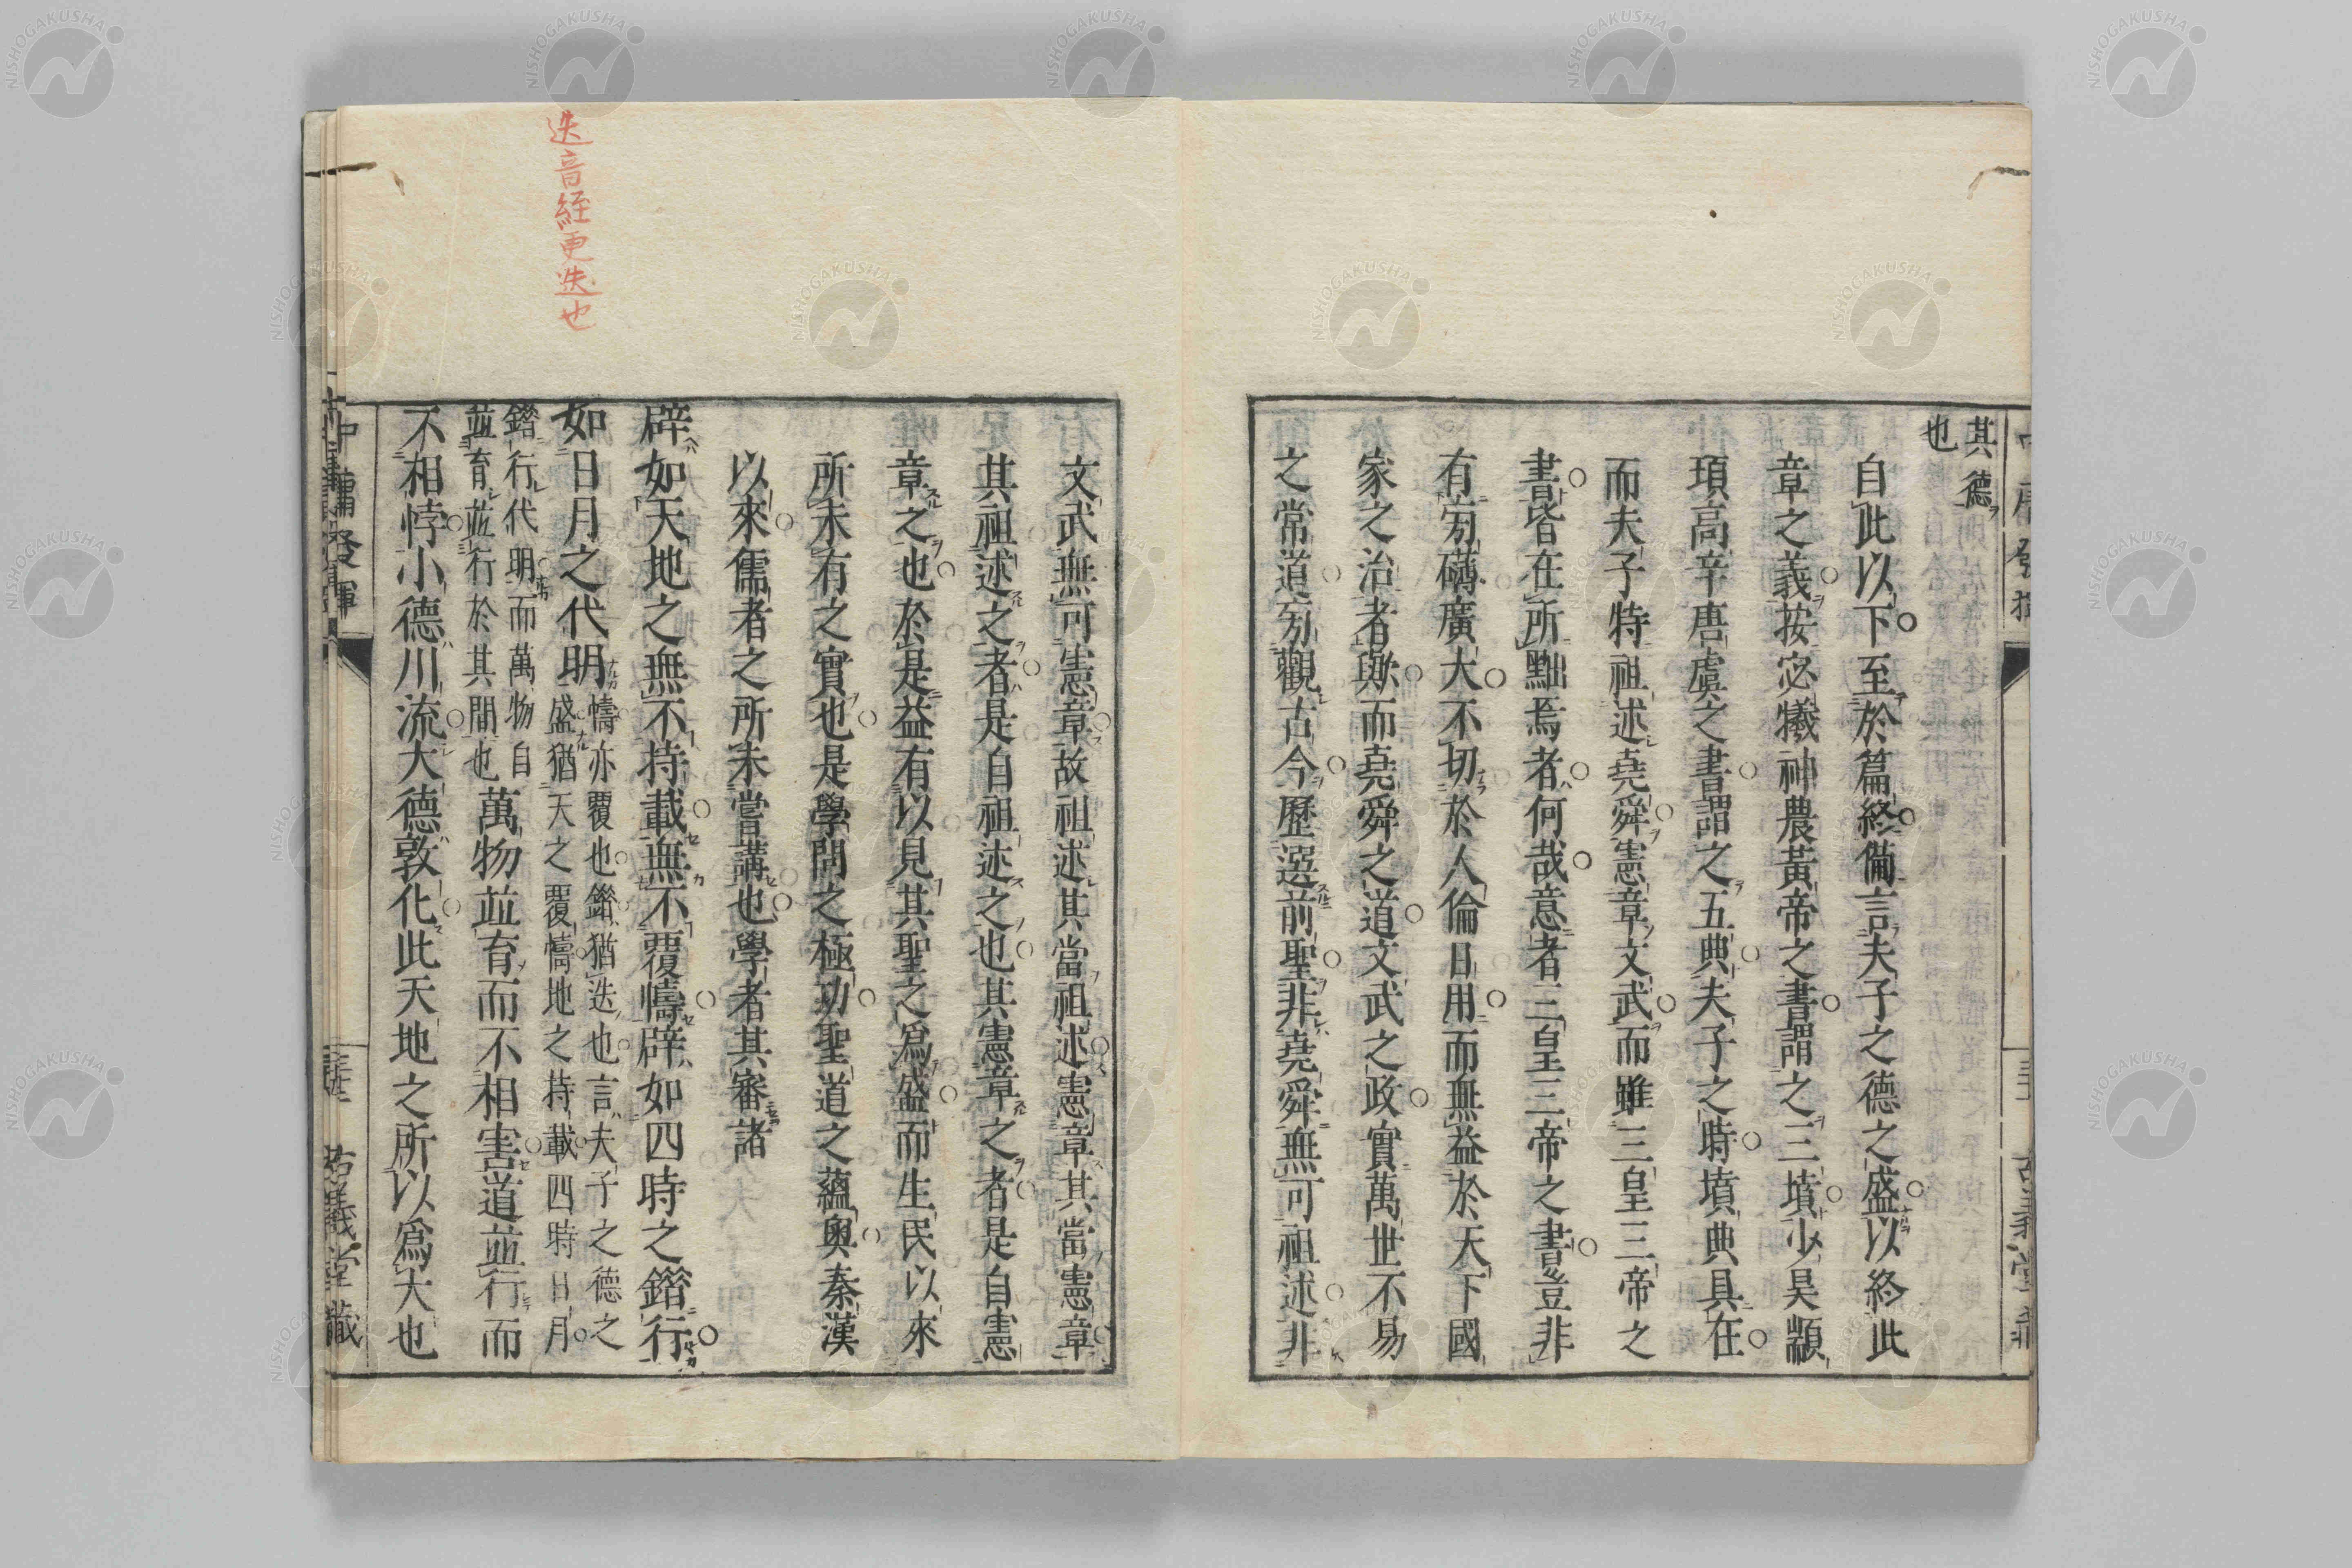 其德
也
自此以下至於篇終備言夫子之德之盛以終此
章之義按宓犧神農黃帝之書謂之三墳少昊顓
頊高辛唐虞之書謂之五典夫子之時墳典具在
而夫子特祖述堯舜憲章文武而雖三皇三帝之
書皆在所黜焉者何哉意者三皇三帝之書豈非
有旁礴廣大不切於人倫日用而無益於天下國
家之治者歟而堯舜之道文武之政實萬世不易
之常道旁觀古今歷選前聖非堯舜無可祖述非
文武無可憲章故祖述其當祖述憲章其當憲章
其祖述之者是自祖述之也其憲章之者是自憲
章之也於是益有以見其聖之爲盛而生民以來
所未有之實也是學問之極功聖道之蘊奧秦漢
以來儒者之所未嘗講也學者其審諸
辟如天地之無不持載無不覆幬辟如四時之錯行
如日月之代明
幬亦覆也錯猶迭也言夫子之德之
盛猶天之覆幬地之持載四時日月
錯行代明而萬物自
並育並行於其間也
萬物並育而不相害道並行而
不相悖小德川流大德敦化此天地之所以爲大也
中庸發揮
古義堂藏
迭音絰更迭也
NISHOGAKUSHA